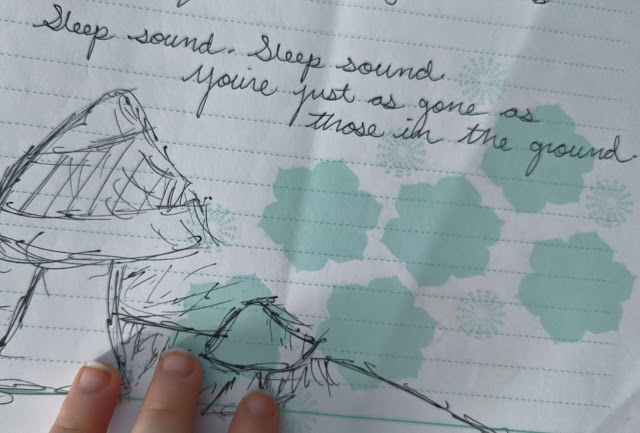 Sleep sound. Sleep sound.
You're just as gone as
those in the ground.